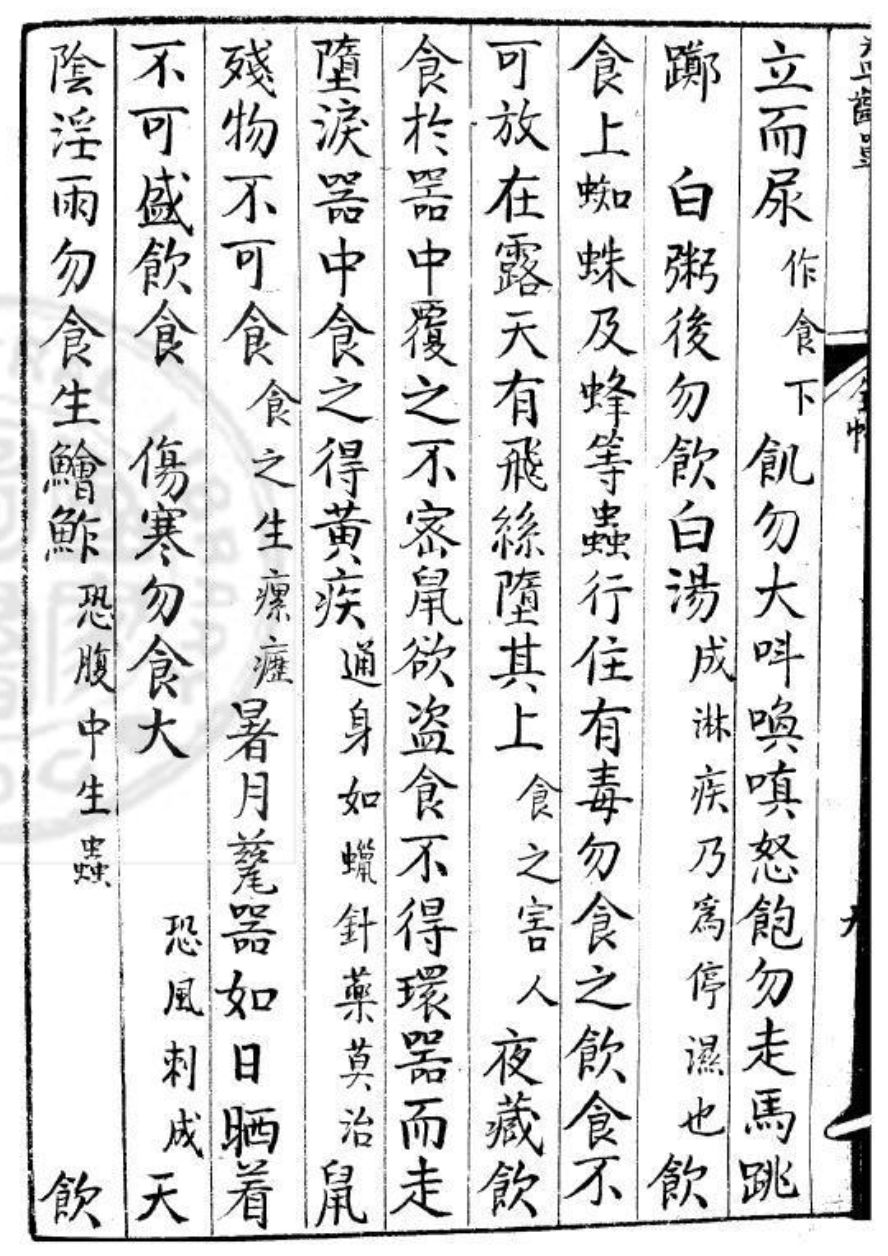 立而尿作食下飢勿大呌喚嗔怒飽勿走馬跳
躑 白粥後勿飲白湯成淋疾乃爲停濕也飲
食上蜘蛛及蜂等蟲行住有毒勿食之飲食不
可放在露天有飛絲墮其上食之害人夜藏飲
食於器中覆之不密鼠欲盗食不得環器而走
墮淚器中食之得黃疾通身如蠟針藥莫治鼠
殘物不可食食之生瘰癧暑月甆器如日晒着
不可盛飲食 傷寒勿食大 恐風刺成天
陰淫雨勿食生鱠鮓恐腹中生蟲 飲